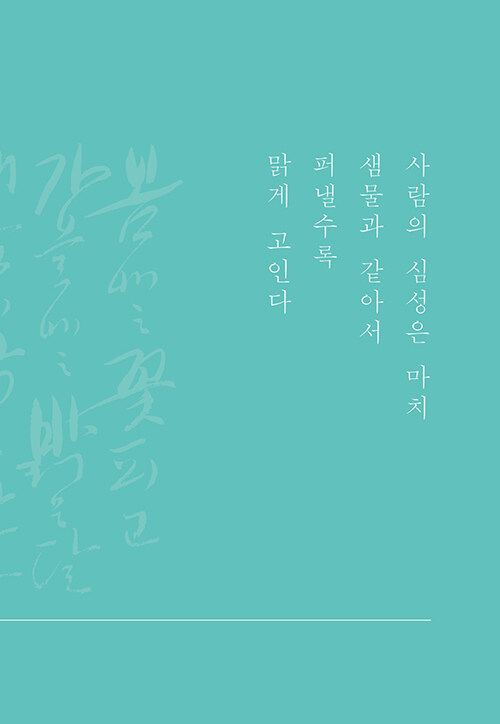 사람의 심성은 마치
샘물과 같아서
퍼낼수록
맑게 고인다
봄에는 꽃피고
가을에는 밝은 달